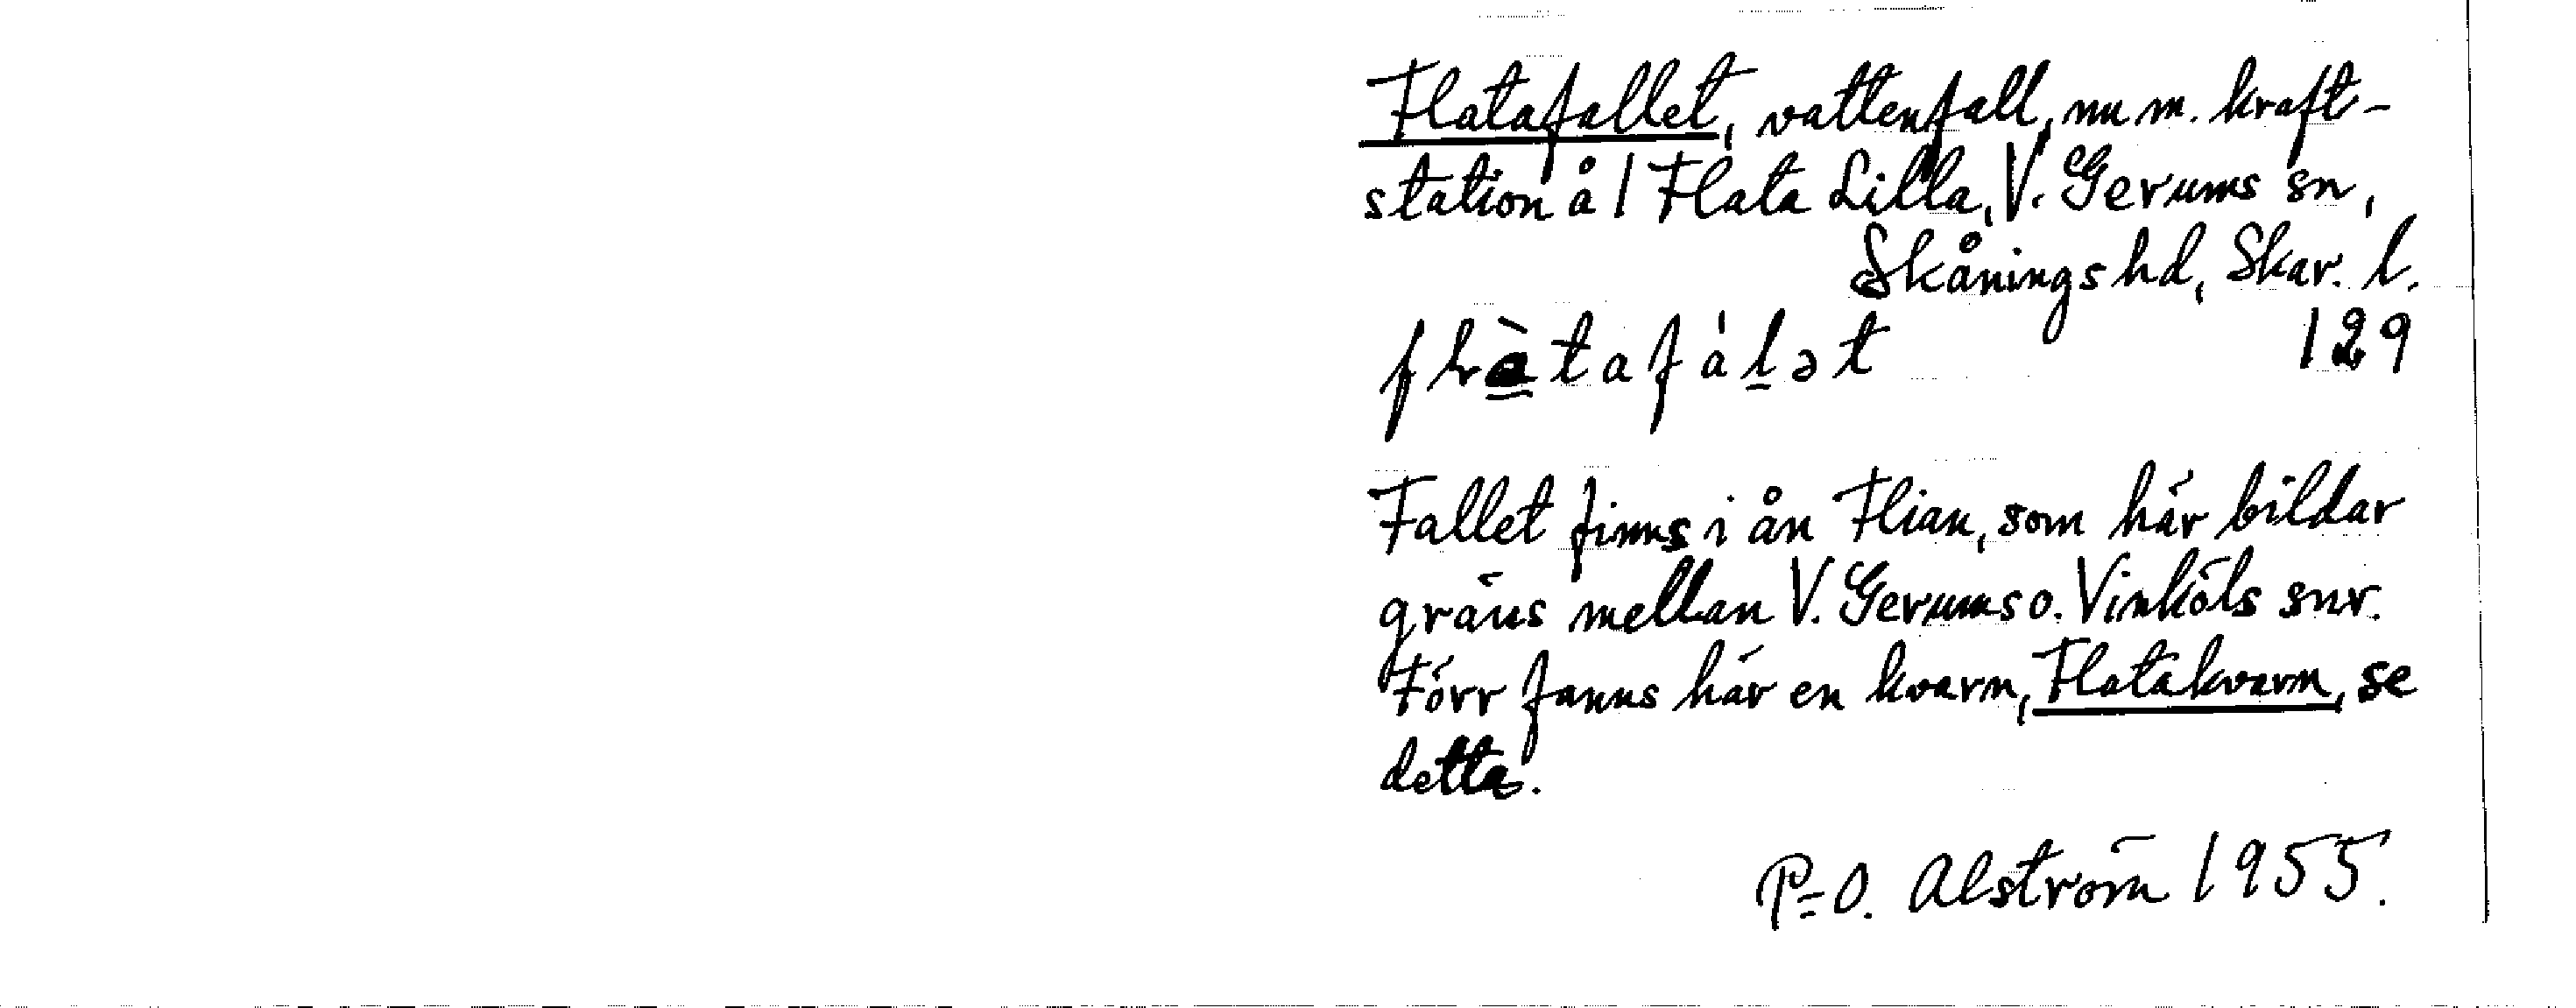 Flatafallet, vattenfall, nu m. kraft-
station å 1 Flata Lilla, V. Gerums sn,
Skånings hd, Skar. l.
129
Fallet finns i ån Flian, som här bildar
gräns mellan V. Gerums o. Vinköls snr.
Förr fanns här en kvarn, Flatakvarn, se
detta.
P-O. Alström 1955.